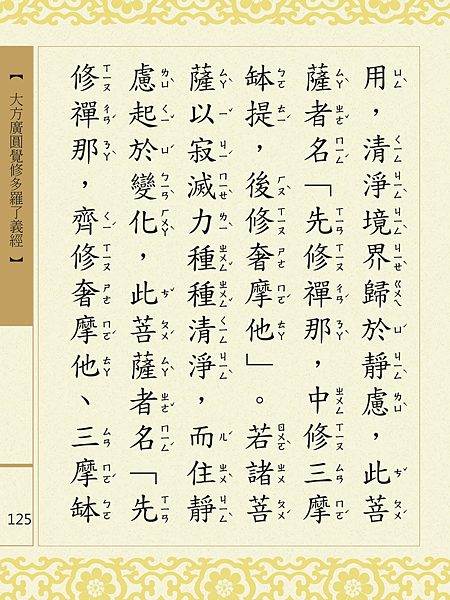 用，清淨境界歸於靜慮，此菩
薩者名「先修禪那，中修三摩
缽提，後修奢摩他」。若諸菩
薩以寂滅力種種清淨，而住靜
慮起於變化，此菩薩者名「先
修禪那，齊修奢摩他、三摩缽
【大方廣圓覺修多羅了義經】
125